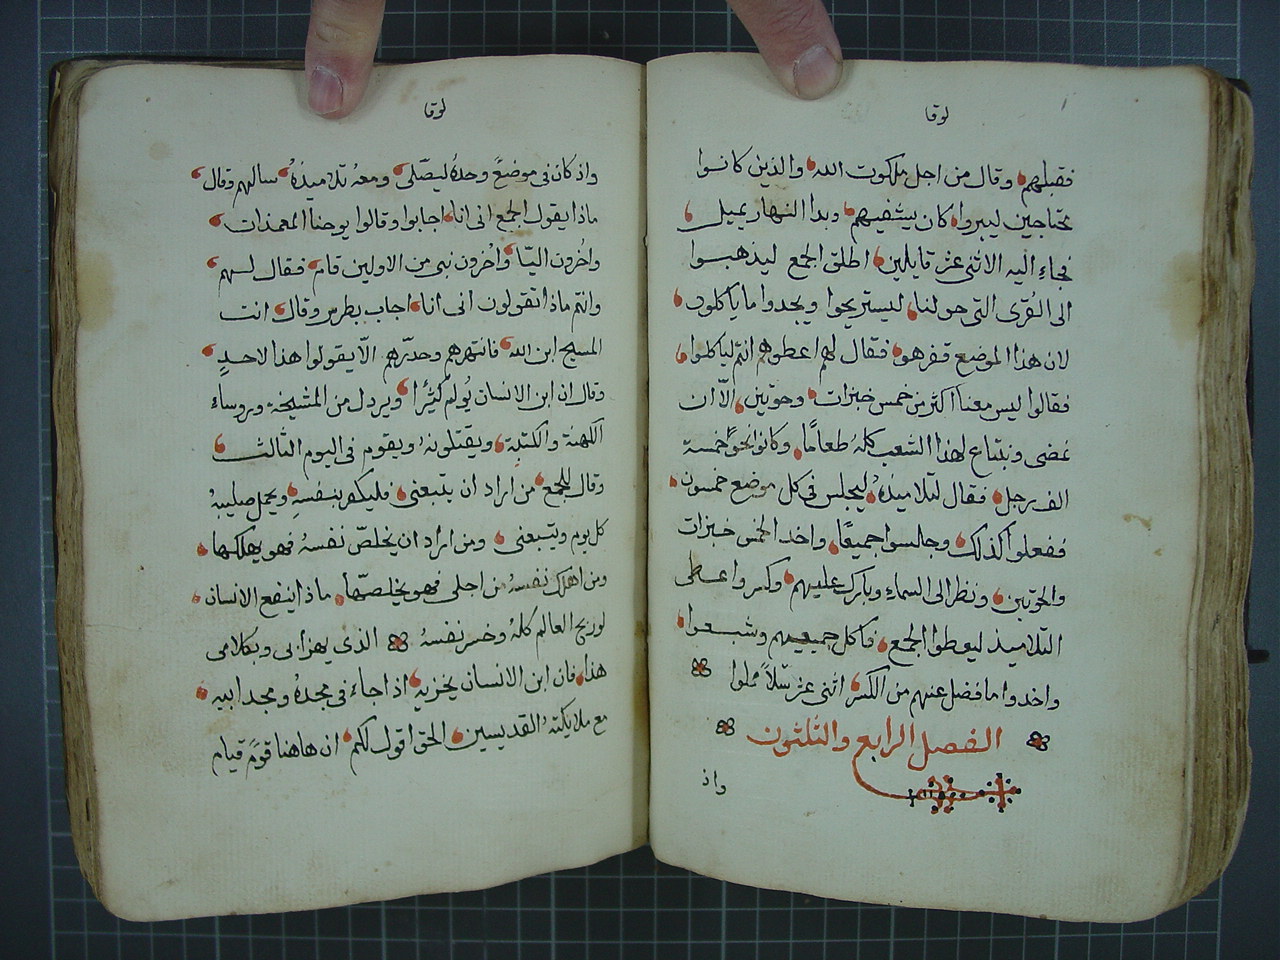 لوقا
فقبلهم وقال من اجل ملكوت الله والذين كانوا
محتاجين ليبروا كان يشفيهم وبدا النهار يميل
فجاء اليه الاثنى عشر قايلين اطلق الجمع ليذهبوا
الى القرى التى حولنا ليستريحوا ويجدوا ما ياكلون
لان هذا الموضع قفر هو فقال لهم اعطوهم انتم لياكلوا
فقالوا ليس معنا اكثر من خمس خبزات وحوتين الّا ان
نمضى ونبتاع لهذا الشعب كلهُ طعامًا وكانوا نحوًا خمسة
الف رجل فقال لتلاميذهُ ليجلس فى كل موضع خمسون
ففعلوا كذلك وجلسوا جميعًا واخد الخمس خبزات
والحوتين ونظر الى السماء وبارك عليهم وكسر واعطى
التلاميذ ليعطوا الجمع فاكل جميعهم وشبعوا
واخدوا ما فضل عنهم من الكسر اثنى عشر سلًا مملوا
الفصل الرابع والثلثون
واذ
لوقا
واذ كان فى موضعً وحدهُ ليصلّى ومعهُ تلاميذهُ سالهم وقال
ماذا يقول الجمع انى انا اجابوا وقالوا يوحنا المعمدات
واخرون اليّا واخرون نبى من الاولين قام فقال لهم
وانتم ماذا تقولون انى انا اجاب بطرس وقال انت
المسيح ابن الله فانتهرهم وحدّرهم الّا يقولوا هذا لاحدٍ
وقال ان ابن الانسان يُولم كثيرًا ويردل من المشيخة وروساء
الكهنة والكتبة ويقتلونهُ ويقوم فى اليوم الثالث
وقال للجمع من اراد ان يتبعنى فليكفر بنفسهِ ويحمل صليبهُ
كل يوم ويتبعنى ومن اراد ان يخلّص نفسهُ فهو يهلكها
ومن اهلك نفسهُ من اجلى فهو يخلصها ماذا ينفع الانسان
لو ربح العالم كلهُ وخسر نفسهُ الذى يهزا بى وبكلامى
هذا فان ابن الانسان يخزيه اذا جاء فى مجدهُ ومجد ابيه
مع ملايكتهُ القديسين الحق اقول لكم ان هاهنا قومً قيام